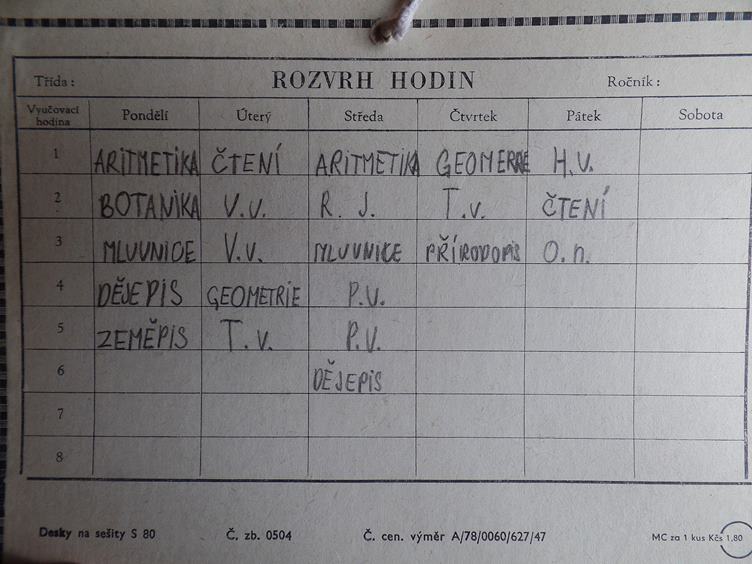 ROZVRH HODIN
Třída: Ročník:
Vyučovací hodina Pondělí Úterý Středa Čtvrtek Pátek Sobota
1 ARITMETIKA ČTENÍ ARITMETIKA H.V.
2 BOTANIKA V.V. R. J. T.V. ČTENÍ
3 MLUVNICE V.V. MLUVNICE PŘÍRODOPIS O.n.
4 DĚJEPIS GEOMETRIE P.V.
5 ZEMĚPIS T.V. P.V.
6 DĚJEPIS
7
8
Desky na sešity S 80 Č. zb. 0504 Č. cen. výměr A/78/0060/627/47 MC za 1 kus Kčs 1,80